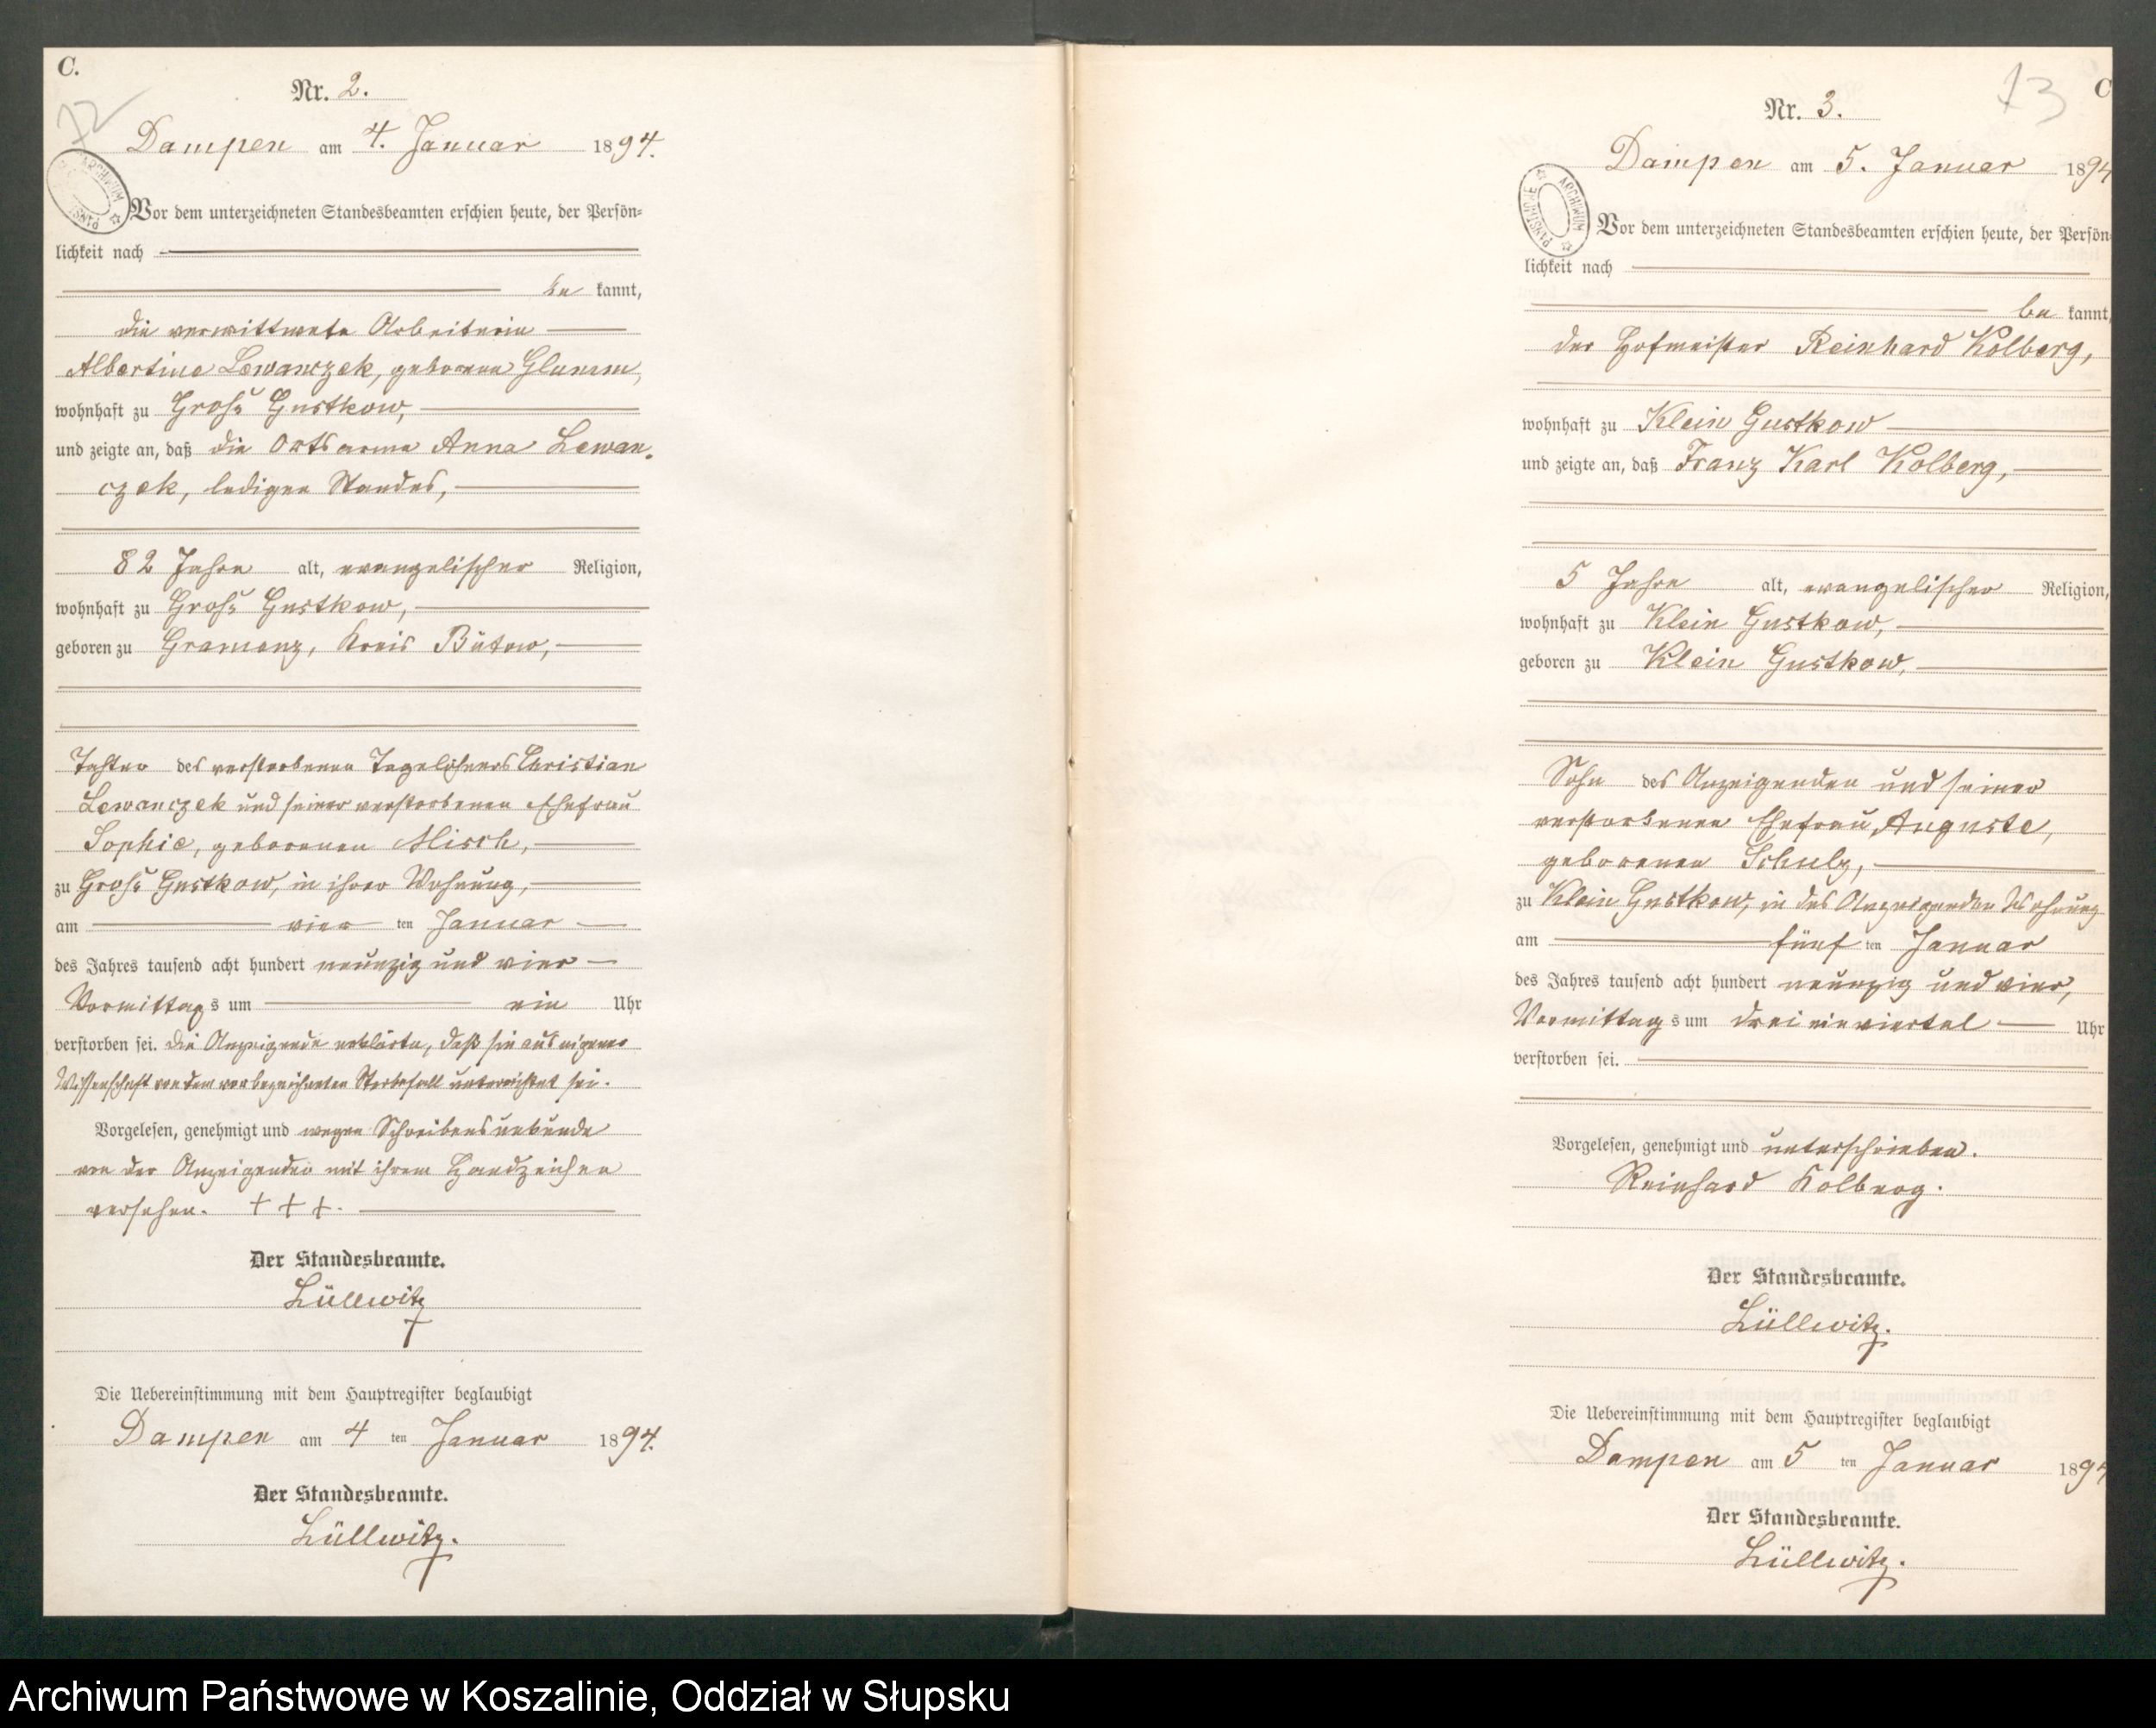 C.
12
Nr. 2.
Dampen am 4. Januar 1894.
ARCHIWUM
Vor dem unterzeichneten Standesbeamten erschien heute, der Persön-
lichkeit nach
be kannt,
die verwittwete Arbeiterin
Albertine Lewanczek, geborene Glumm,
wohnhaft zu Groß Gustkow,
und zeigte an, daß die Ortsarme Anna Lewan-
czek, ledigen Standes,
82 Jahre alt, evangelischer Religion,
wohnhaft zu Groß Gustkow,
geboren zu Gramenz, Kreis Bütow,
Tochter des verstorbenen Tagelöhners Christian
Lewanczek und seiner verstorbenen Ehefrau
Sophie, geborenen Misch,
zu Groß Gustkow, in ihrer Wohnung,
am vier ten Januar
des Jahres tausend acht hundert neunzig und vier
Vormittags um ein Uhr
verstorben sei. Die Anzeigende erklärte, daß sie aus eigener
Wissenschaft von dem vorbezeichneten Sterbefall unterrichtet sei.
Vorgelesen, genehmigt und wegen Schreibensunkunde
von der Anzeigenden mit ihrem Handzeichen
versehen. + + +.
Der Standesbeamte.
Lüllwitz
Die Uebereinstimmung mit dem Hauptregister beglaubigt
Dampen am 4 ten Januar 1894.
Der Standesbeamte.
Lüllwitz.
13
C
Nr. 3.
Dampen am 5. Januar 1894
ARCHIWUM PAŃSTWOWE
Vor dem unterzeichneten Standesbeamten erschien heute, der Persön
lichkeit nach
be kannt,
der Hofmeister Reinhard Kolberg,
wohnhaft zu Klein Gustkow
und zeigte an, daß Franz Karl Kolberg,
5 Jahre alt, evangelischer Religion,
wohnhaft zu Klein Gustkow,
geboren zu Klein Gustkow,
Sohn des Anzeigenden und seiner
verstorbenen Ehefrau, Auguste,
geborenen Schulz,
zu Klein Gustkow, in des Anzeigenden Wohnung
am fünf ten Januar
des Jahres tausend acht hundert neunzig und vier,
Vormittags um drei einviertel Uhr
verstorben sei.
Vorgelesen, genehmigt und unterschrieben.
Reinhard Kolberg.
Der Standesbeamte.
Lüllwitz.
Die Uebereinstimmung mit dem Hauptregister beglaubigt
Dampen am 5 ten Januar 1894
Der Standesbeamte.
Lüllwitz.
Archiwum Państwowe w Koszalinie, Oddział w Słupsku